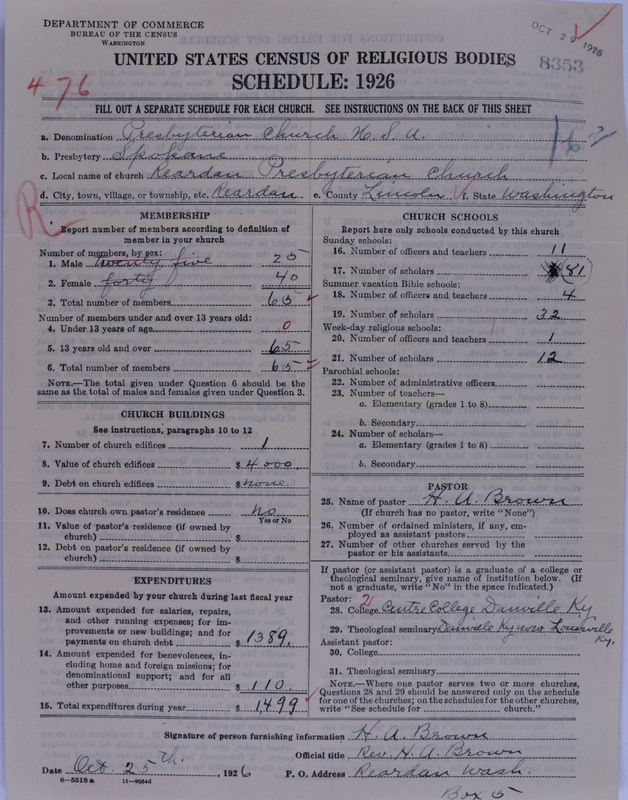 DEPARTMENT OF COMMERCE
BUREAU OF THE CENSUS
WASHINGTON
OCT 29 1926
8353
UNITED STATES CENSUS OF RELIGIOUS BODIES
SCHEDULE: 1926
476
FILL OUT A SEPARATE SCHEDULE FOR EACH CHURCH. SEE INSTRUCTIONS ON THE BACK OF THIS SHEET
a. Denomination Presbyterian Church U.S.A.
b. Presbytery Spokane
c. Local name of church Reardan Presbyterian Church
d. City, town, village, or township, etc. Reardan e. County Lincoln f. State Washington
R
MEMBERSHIP
Report number of members according to definition of
member in your church
Number of members, by sex:
1. Male twenty five 25
2. Female forty 40
3. Total number of members 65
Number of members under and over 13 years old:
4. Under 13 years of age 0
5. 13 years old and over 65
6. Total number of members 65
NOTE.—The total given under Question 6 should be the
same as the total of males and females given under Question 3.
CHURCH BUILDINGS
See instructions, paragraphs 10 to 12
7. Number of church edifices 1
8. Value of church edifices $ 4000
9. Debt on church edifices $ none
10. Does church own pastor's residence no
Yes or No
11. Value of pastor's residence (if owned by
church) $
12. Debt on pastor's residence (if owned by
church) $
EXPENDITURES
Amount expended by your church during last fiscal year
13. Amount expended for salaries, repairs,
and other running expenses; for im-
provements or new buildings; and for
payments on church debt $ 1389.
14. Amount expended for benevolences, in-
cluding home and foreign missions; for
denominational support; and for all
other purposes $ 110.
15. Total expenditures during year $ 1499
CHURCH SCHOOLS
Report here only schools conducted by this church
Sunday schools:
16. Number of officers and teachers 11
17. Number of scholars 81
Summer vacation Bible schools:
18. Number of officers and teachers 4
19. Number of scholars 32
Week-day religious schools:
20. Number of officers and teachers 1
21. Number of scholars 12
Parochial schools:
22. Number of administrative officers
23. Number of teachers—
a. Elementary (grades 1 to 8)
b. Secondary
24. Number of scholars—
a. Elementary (grades 1 to 8)
b. Secondary
PASTOR
25. Name of pastor H. A. Brown
(If church has no pastor, write "None")
26. Number of ordained ministers, if any, em-
ployed as assistant pastors
27. Number of other churches served by the
pastor or his assistants
If pastor (or assistant pastor) is a graduate of a college or
theological seminary, give name of institution below. (If
not a graduate, write "No" in the space indicated.)
Pastor: 2
28. College Centre College Danville Ky
29. Theological seminary Danville Ky now Louisville
Ky.
Assistant pastor:
30. College
31. Theological seminary
NOTE.—Where one pastor serves two or more churches,
Questions 28 and 29 should be answered only on the schedule
for one of the churches; on the schedules for the other churches,
write "See schedule for church."
Signature of person furnishing information H. A. Brown
Official title Rev. H. A. Brown
Date Oct. 25th, 1926 P. O. Address Reardan Wash.
8—5518a 11—9054d
Box 5